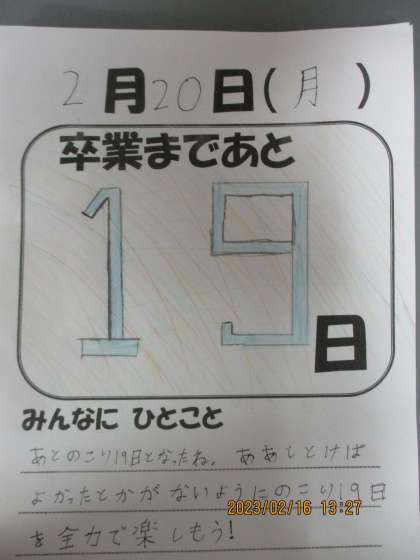 2月20日(月)
卒業まであと
19
日
みんなに ひとこと
あとのこり19日となったね。 ああしとけば
よかったとかがないようにのこり19日
を全力で楽しもう!
2023/02/16 13:27